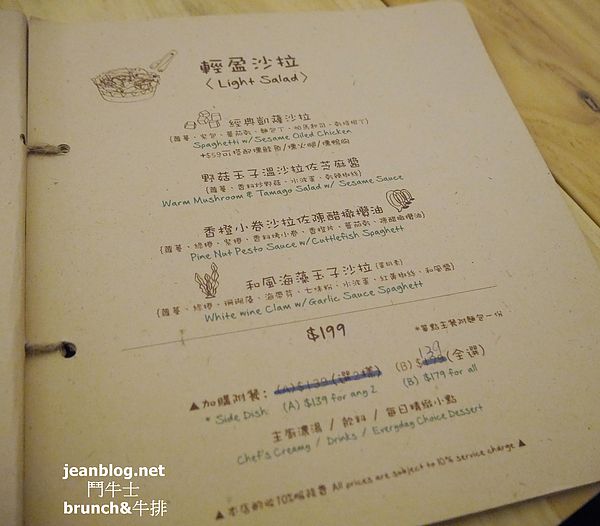 輕盈沙拉
〈Light Salad〉
經典凱薩沙拉
Spaghetti w/ Sesame Oiled Chicken
+$59可搭配燻鮭魚/燻火腿/燻鴨胸
野菇玉子溫沙拉佐芝麻醬
(蘿蔓、香料炒野菇、水波蛋、乾辣椒絲)
Warm Mushroom & Tamago Salad w/ Sesame Sauce
香橙小卷沙拉佐陳醋橄欖油
(蘿蔓、綠捲、紫捲、香料烤小卷、香橙片、蕃茄乾、陳醋橄欖油)
Pine Nut Pesto Sauce w/ Cuttlefish Spaghett
和風海藻玉子沙拉(蛋奶素)
(蘿蔓、綠捲、珊瑚藻、海帶芽、七味粉、水波蛋、紅黃椒絲、和風醬)
White wine Clam w/ Garlic Sauce Spaghett
$199
*單點主餐附麵包一份
▲加購附餐: (A)$139(選2樣) (B) $139(全選)
* Side Dish (A) $139 for ang 2 (B) $179 for all
主廚濃湯 / 飲料 / 每日精緻小點
Chef's Creamy / Drinks / Everyday Choice Dessert
▲本店酌收10%服務費 All prices are subject to 10% service charge▲
jeanblog.net
鬥牛士
brunch&牛排